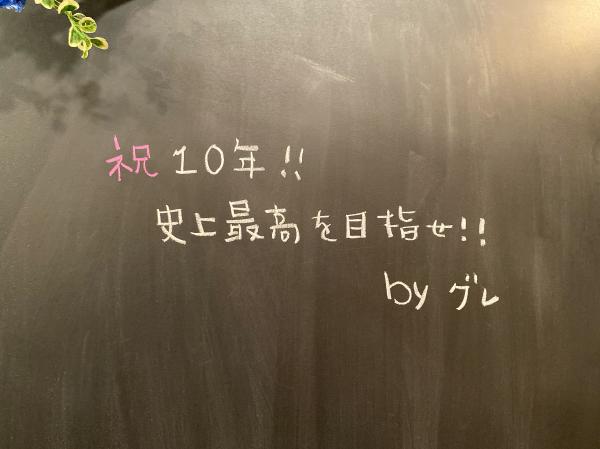 祝10年!!
史上最高を目指せ!!
by グレ